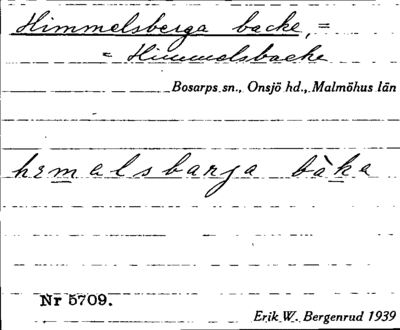 Himmelsberga backe, =
= Himmelsbacke
Bosarps sn., Onsjö hd., Malmöhus län
hemalsbarja bàka
Nr 5709.
Erik W. Bergenrud 1939